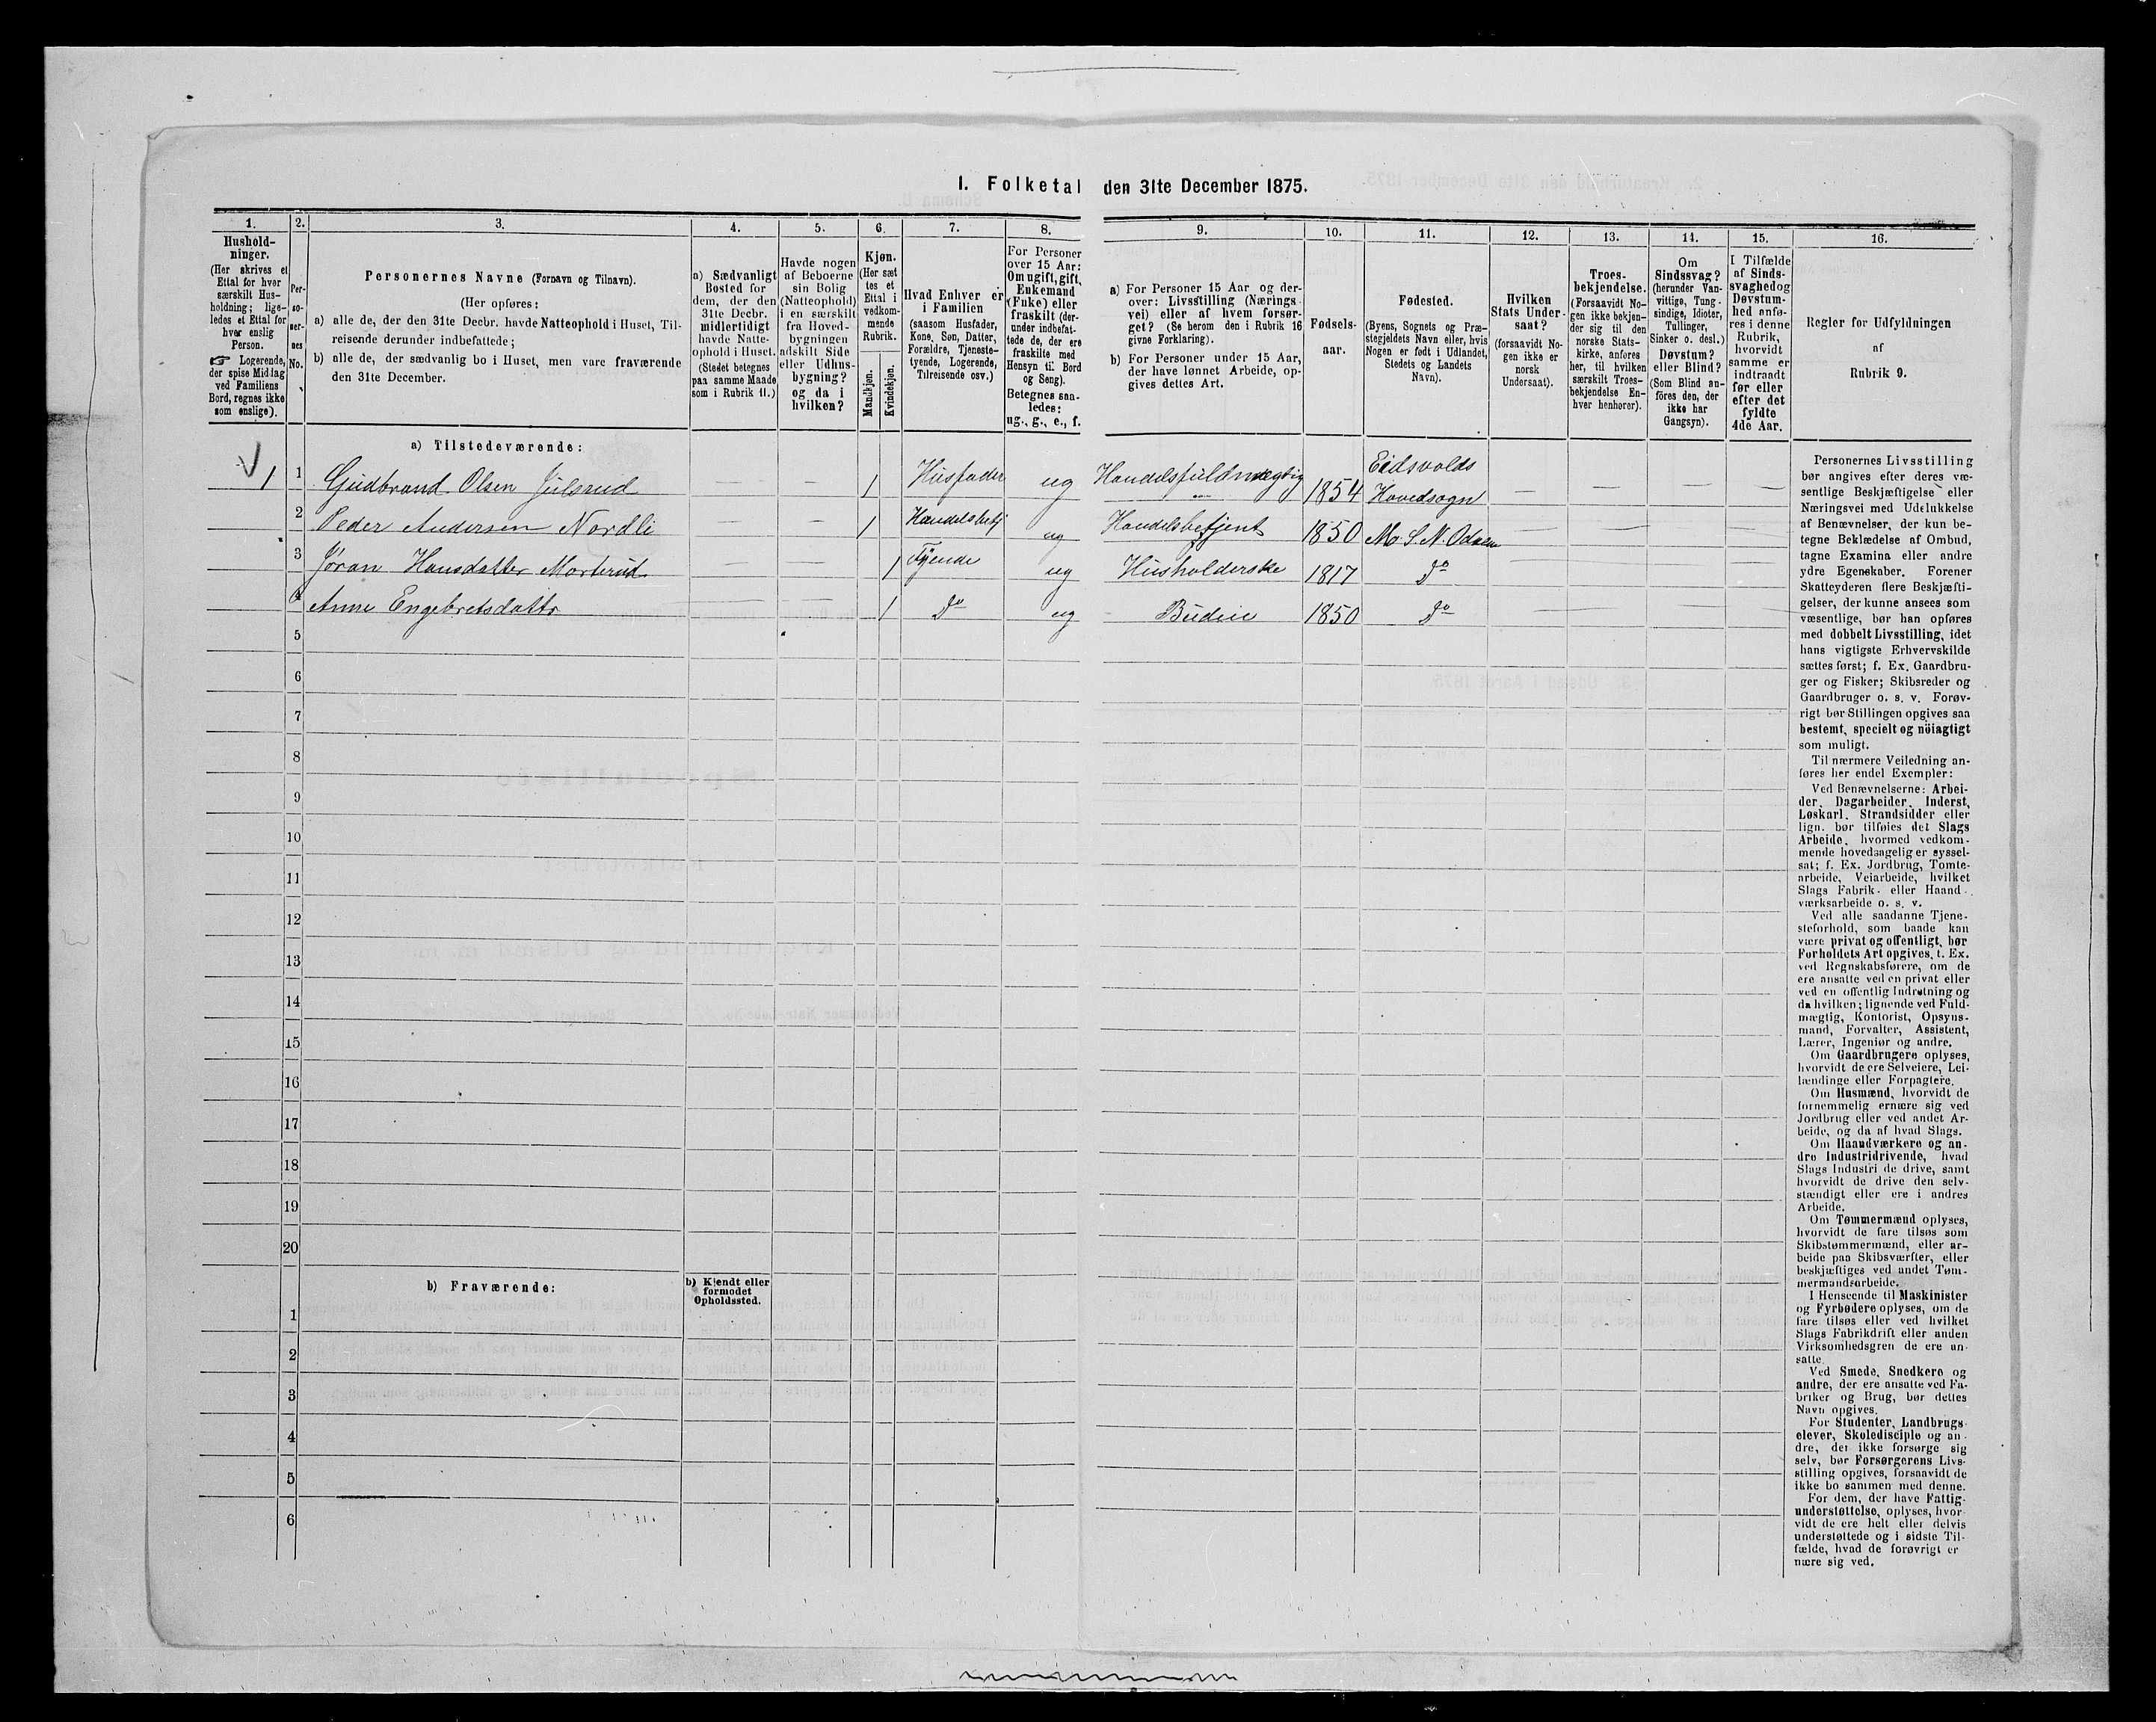 I. Folketal den 31te December 1875.
1.
Hushold-
ninger.
(Her skrives et
Ettal for hver
særskilt Hus-
holdning; lige-
ledes et Ettal for
hver enslig
Person.
☞ Logerende,
der spise Middag
ved Familiens
Bord, regnes ikke
som enslige).
2.
Per-
so-
ner-
nes
No.
3.
Personernes Navne (Fornavn og Tilnavn).
(Her opføres:
a) alle de, der den 31te Decbr. havde Natteophold i Huset, Til-
reisende derunder indbefattede;
b) alle de, der sædvanlig bo i Huset, men vare fraværende
den 31te December.
4.
a) Sædvanligt
Bosted for
dem, der den
31te Decbr.
midlertidigt
havde Natte-
ophold i Huset.
(Stedet betegnes
paa samme Maade
som i Rubrik 11.)
5.
Havde nogen
af Beboerne
sin Bolig
(Natteophold)
i en særskilt
fra Hoved-
bygningen
adskilt Side
eller Udhus-
bygning?
og da i
hvilken?
6.
Kjøn.
(Her sæt
tes et
Ettal i
vedkom-
mende
Rubrik.
Mandkjøn.
Kvindekjøn.
7.
Hvad Enhver er
i Familien
(saasom Husfader,
Kone, Søn, Datter,
Forældre, Tjeneste-
tyende, Logerende,
Tilreisende osv.)
8.
For Personer
over 15 Aar:
Om ugift, gift,
Enkemand
(Enke) eller
fraskilt (der-
under indbefat-
tede de, der ere
fraskilte med
Hensyn til Bord
og Seng).
Betegnes saa-
ledes:
ug., g., e., f.
9.
a) For Personer 15 Aar og der-
over: Livsstilling (Nærings-
vei) eller af hvem forsør-
get? (Se herom den i Rubrik 16
givne Forklaring).
b) For Personer under 15 Aar,
der have lønnet Arbeide, op-
gives dettes Art.
10.
Fødsels-
aar.
11.
Fødested.
(Byens, Sognets og Præ-
stegjeldets Navn eller, hvis
Nogen er født i Udlandet,
Stedets og Landets
Navn).
12.
Hvilken
Stats Under-
saat?
(forsaavidt No-
gen ikke er
norsk
Undersaat).
13.
Troes-
bekjendelse.
(Forsaavidt No-
gen ikke bekjen-
der sig til den
norske Stats-
kirke, anføres
her, til hvilken
særskilt Troes-
bekjendelse En-
hver henhører).
14.
Om
Sindssvag?
(herunder Van-
vittige, Tung-
sindige, Idioter,
Tullinger,
Sinker o. desl.)
Døvstum?
eller Blind?
(Som Blind an-
føres den, der
ikke har
Gangsyn).
15.
I Tilfælde
af Sinds-
svaghed og
Døvstum-
hed anfø-
res i denne
Rubrik,
hvorvidt
samme er
indtraadt
før eller
efter det
fyldte
4de Aar.
16.
Regler for Udfyldningen
af
Rubrik 9.
a) Tilstedeværende:
1 1 Gudbrand Olsen Julsrud — — 1 Husfader ug Handelsfuldmægtig 1854 Eidsvolds Hovedsogn — — — —
2 Peder Andersen Nordli — — 1 Handelsbetj ug Handelsbetjent 1850 Mo. S. N. Odalen — — — —
3 Jøran Hansdatter Morterud — — 1 Tyende ug Husholderske 1817 Do — — — —
4 Anne Engebretsdattr — — 1 Do ug Budeie 1850 Do — — — —
5
6
7
8
9
10
11
12
13
14
15
16
17
18
19
20
b) Fraværende:
b) Kjendt eller
formodet
Opholdssted.
1
2
3
4
5
6
Personernes Livsstilling
bør angives efter deres væ-
sentlige Beskjæftigelse eller
Næringsvei med Udelukkelse
af Benævnelser, der kun be-
tegne Beklædelse af Ombud,
tagne Examina eller andre
ydre Egenskaber. Forener
Skatteyderen flere Beskjæfti-
gelser, der kunne ansees som
væsentlige, bør han opføres
med dobbelt Livsstilling, idet
hans vigtigste Erhvervskilde
sættes først; f. Ex. Gaardbru-
ger og Fisker; Skibsreder og
Gaardbruger o. s. v. Forøv-
rigt bør Stillingen opgives saa
bestemt, specielt og nöiagtigt
som muligt.
Til nærmere Veiledning an-
føres her endel Exempler:
Ved Benævnelserne: Arbei-
der, Dagarbeider, Inderst,
Løskarl, Strandsidder eller
lign. bør tilføies det Slags
Arbeide, hvormed vedkom-
mende hovedsagelig er syssel-
sat; f. Ex. Jordbrug, Tomte-
arbeide, Veiarbeide, hvilket
Slags Fabrik- eller Haand-
værksarbeide o. s. v.
Ved alle saadanne Tjene-
steforhold, som baade kan
være privat og offentligt, bør
Forholdets Art opgives, t. Ex.
ved Regnskabsførere, om de
ere ansatte ved en privat eller
ved en offentlig Indretning og
da hvilken; lignende ved Fuld-
mægtig, Kontorist, Opsyns-
mand, Forvalter, Assistent,
Lærer, Ingeniør og andre.
Om Gaardbrugere oplyses,
hvorvidt de ere Selveiere, Lei-
lændinge eller Forpagtere.
Om Husmænd, hvorvidt de
fornemmelig ernære sig ved
Jordbrug eller ved andet Ar-
beide, og da af hvad Slags.
Om Haandværkere og an-
dre Industridrivende, hvad
Slags Industri de drive, samt
hvorvidt de drive den selv-
stændigt eller ere i andres
Arbeide.
Om Tømmermænd oplyses,
hvorvidt de fare tilsøs som
Skibstømmermænd, eller ar-
beide paa Skibsværfter, eller
beskjæftiges ved andet Tøm-
mermandsarbeide.
I Henseende til Maskinister
og Fyrbødere oplyses, om de
fare tilsøs eller ved hvilket
Slags Fabrikdrift eller anden
Virksomhedsgren de ere an-
satte.
Ved Smede, Snedkere og
andre, der ere ansatte ved Fa-
briker og Brug, bør dettes
Navn opgives.
For Studenter, Landbrugs-
elever, Skoledisciple og an-
dre, der ikke forsørge sig
selv, bør Forsørgerens Livs-
stilling opgives, forsaavidt de
ikke bo sammen med denne.
For dem, der have Fattig-
understøttelse, oplyses, hvor-
vidt de ere helt eller delvis
understøttede og i sidste Til-
fælde, hvad de forøvrigt er
nære sig ved.